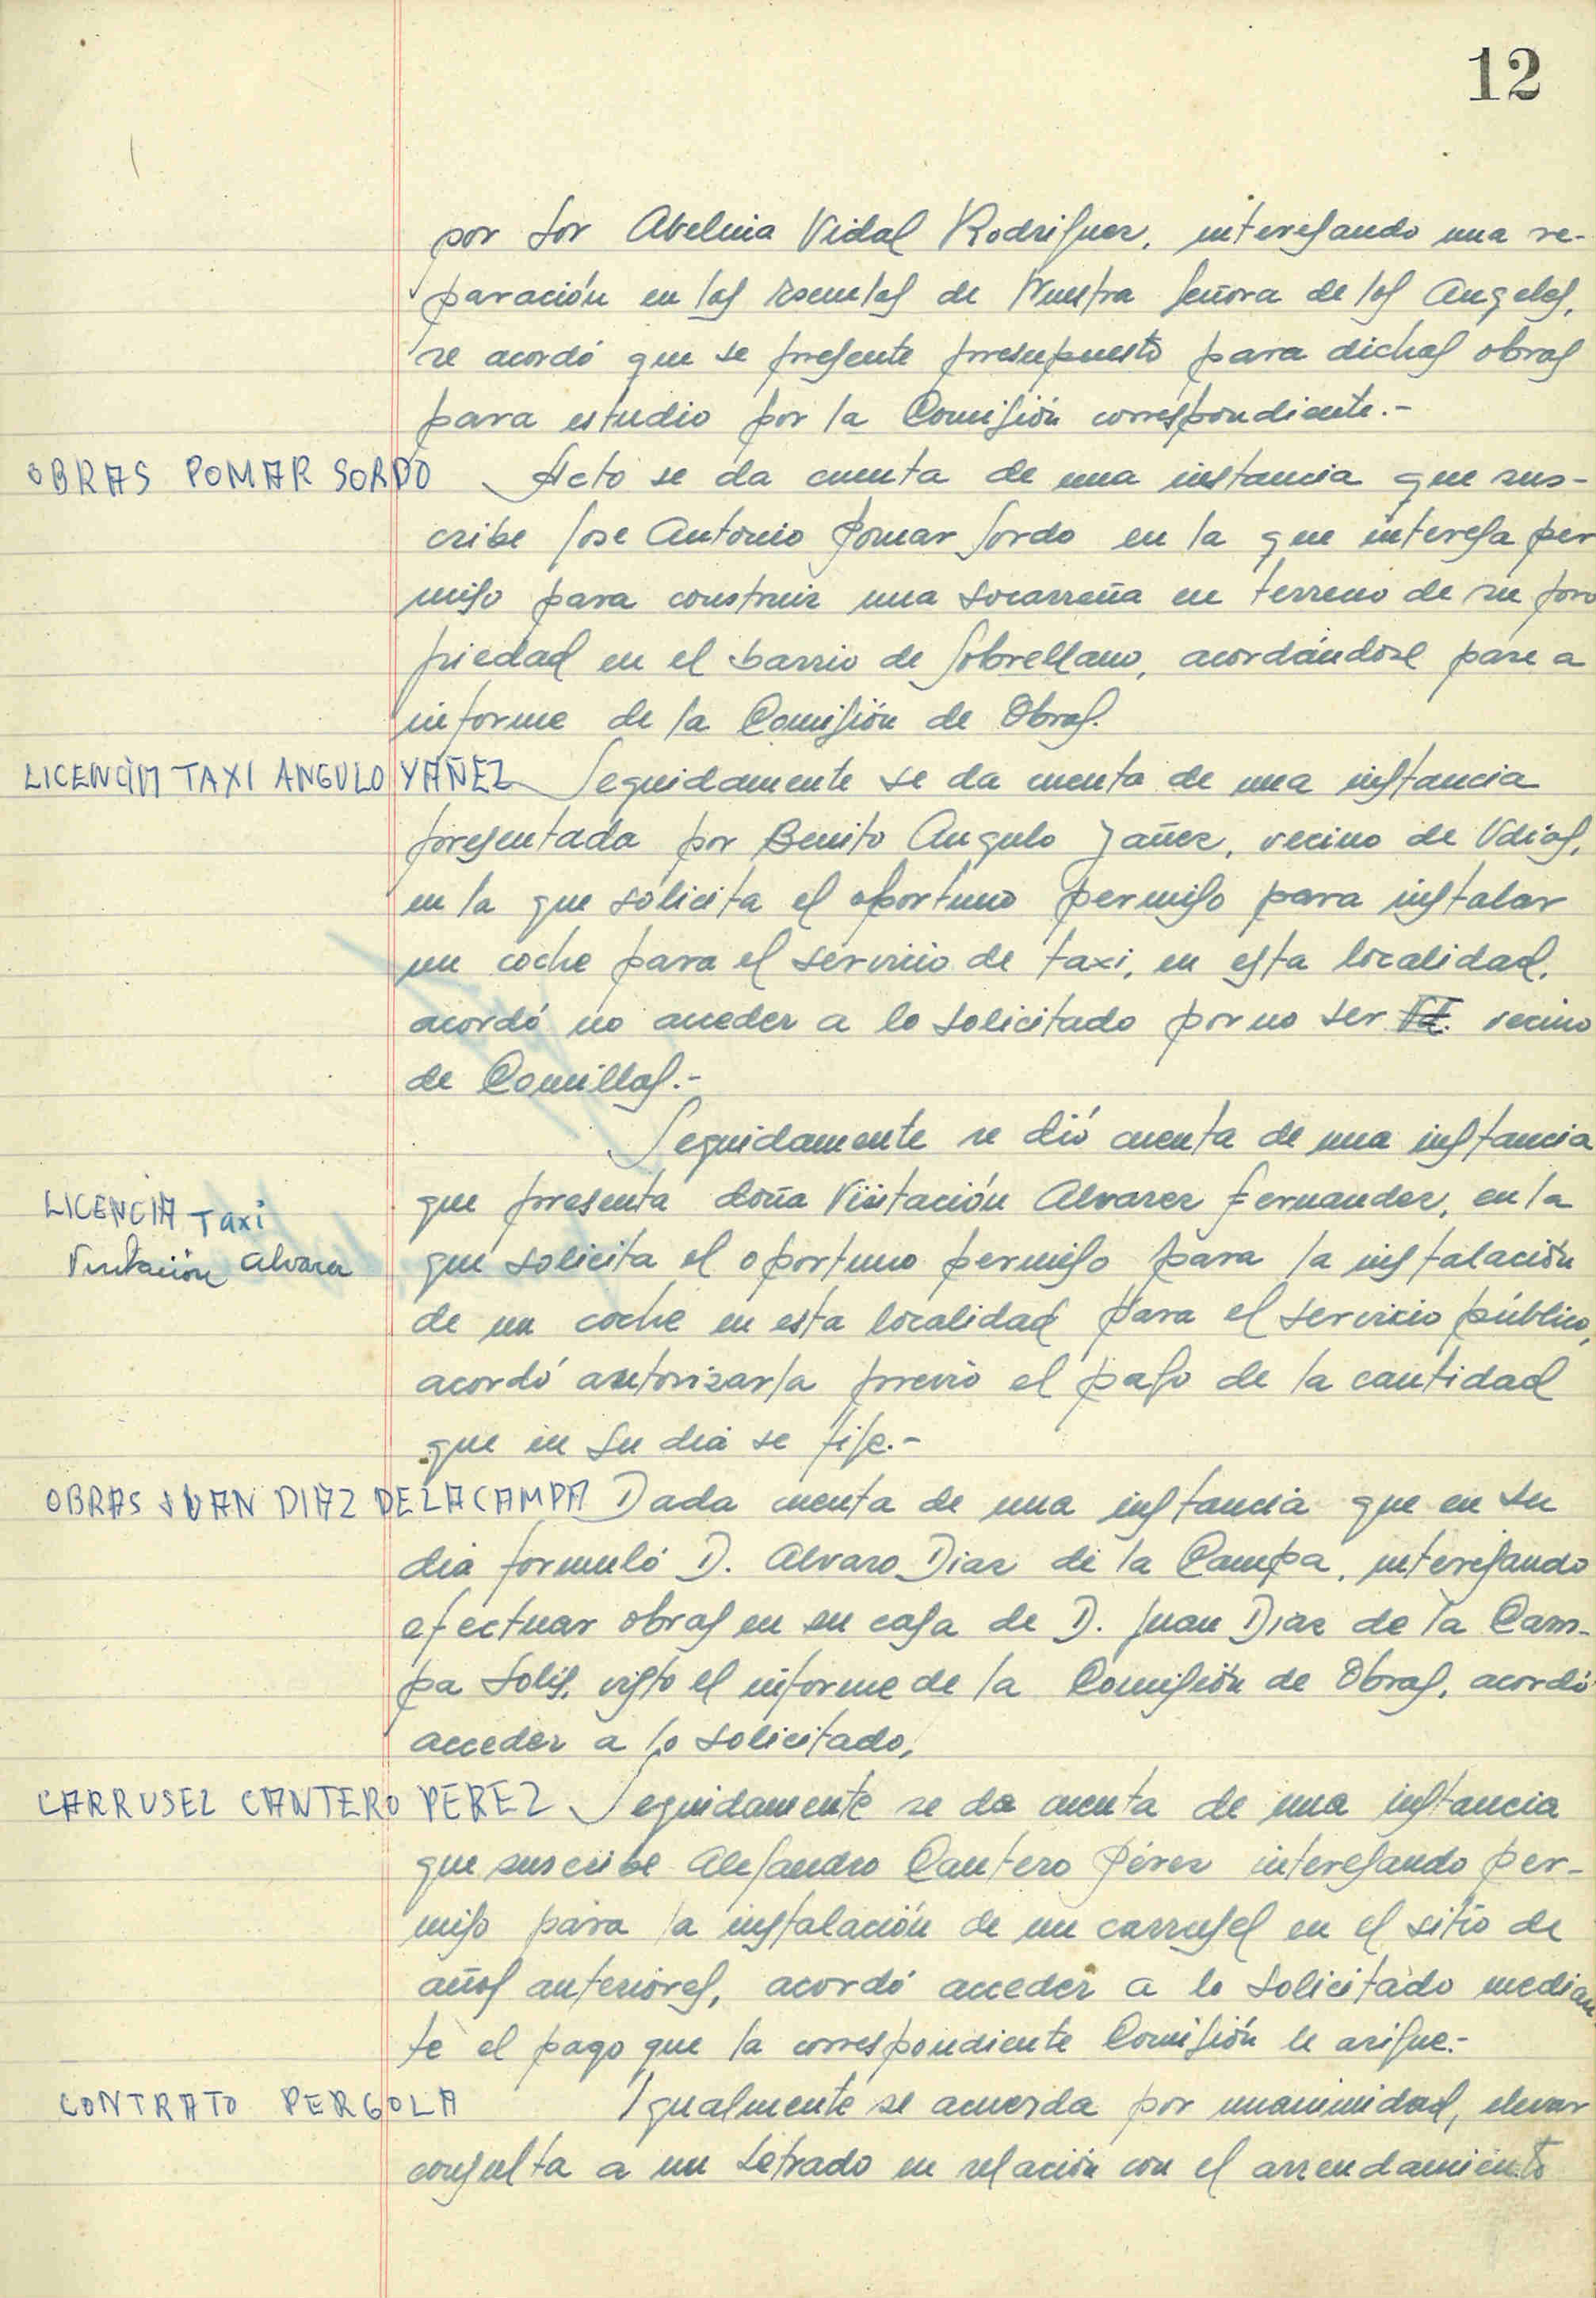 12
por Sor Abelina Vidal Rodriguez, interesando una re-
paración en las Escuelas de Nuestra Señora de los Angeles,
se acordó que se presente presupuesto para dichas obras
para estudio por la Comisión correspondiente.-
OBRAS POMAR SORDO Acto se da cuenta de una instancia que sus-
cribe Jose Antonio Pomar Sordo en la que interesa per
miso para construir una socarreña en terreno de su pro
piedad en el barrio de Sobrellano, acordándose pase a
informe de la Comisión de Obras.
LICENCIA TAXI ANGULO YAÑEZ Seguidamente se da cuenta de una instancia
presentada por Benito Angulo Yañez, vecino de Udias,
en la que solicita el oportuno permiso para instalar
un coche para el servicio de taxi, en esta localidad,
acordó no acceder a lo solicitado por no ser vecino
de Comillas.-
Seguidamente se dió cuenta de una instancia
LICENCIA Taxi
Visitación Alvarez
que presenta doña Visitación Alvarez Fernandez, en la
que solicita el oportuno permiso para la instalación
de un coche en esta localidad para el servicio público,
acordó autorizarla previo el pago de la cantidad
que en su dia se fije.-
OBRAS JUAN DIAZ DE LA CAMPA Dada cuenta de una instancia que en su
dia formuló D. Alvaro Diaz de la Campa, interesando
efectuar obras en su casa de D. Juan Diaz de la Cam-
pa Solis, visto el informe de la Comisión de Obras, acordó
acceder a lo solicitado,
CARRUSEL CANTERO PEREZ Seguidamente se da cuenta de una instancia
que suscribe Alejandro Cantero Pérez interesando per-
miso para la instalación de un carrusel en el sitio de
años anteriores, acordó acceder a lo solicitado median
te el pago que la correspondiente Comisión le asigne.-
CONTRATO PERGOLA Igualmente se acuerda por unanimidad, elevar
consulta a un Letrado en relación con el arrendamiento